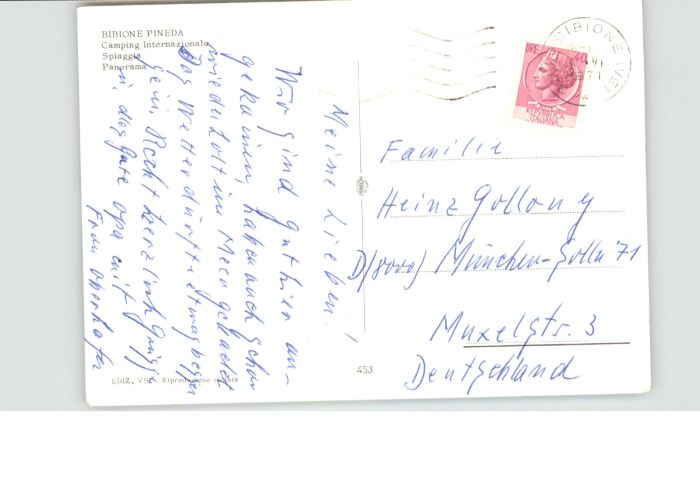 BIBIONE PINEDA
Camping Internazionale
Spiaggia
Panorama
Meine Lieben!
Wir sind gut hier an-
gekommen, haben auch schon
wiederholt im Meer gebadet
Das Wetter dürfte etwas besser
sein. Recht herzliche Grüße
der gute Opa mit
Frau
BIBIONE (VE)
LIRE
REPUBBLICA
ITALIANA
Familie
Heinz Gollong
D(8000) München-Solln 71
Muxelstr. 3
Deutschland
453
EDIZ. VS. - Riproduzione vietata